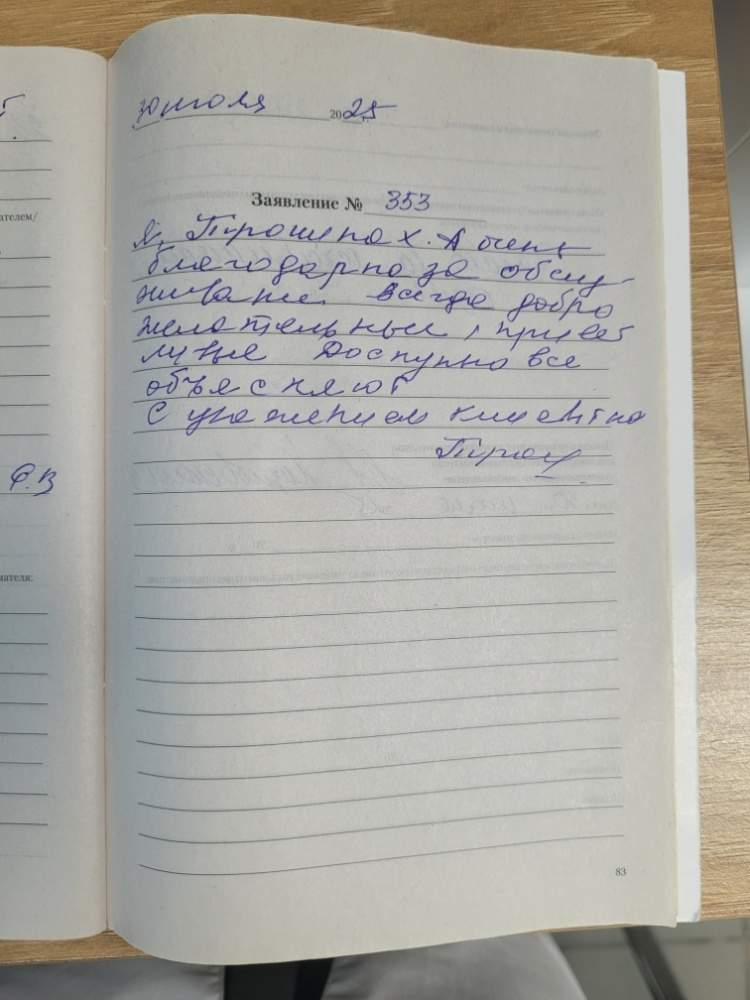 30 июля 2025
Заявление № 353
Я, Трошина Х. А очень
благодарна за обслу-
живание. всегда добро
желательные, привет
ливые Доступно все
объясняют
С уважением клиентка
ателем/
Ф.В
мателя:
83